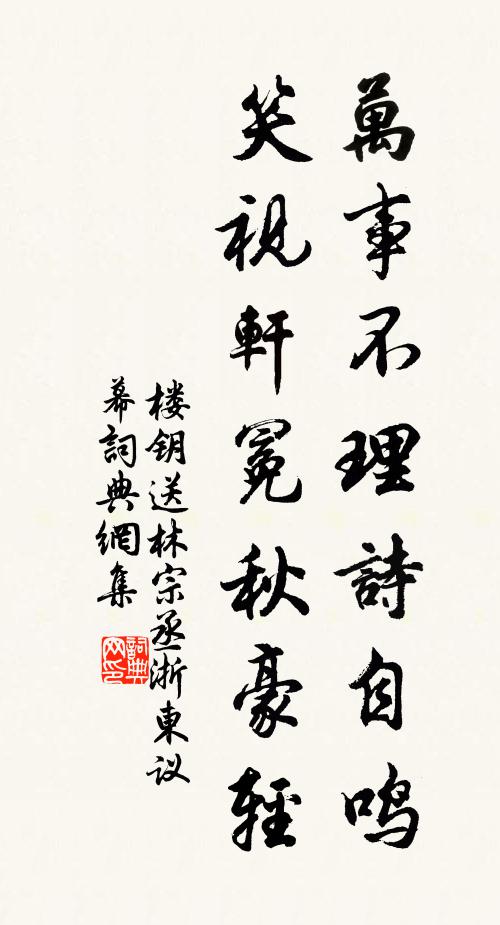 萬事不理詩自鳴
笑視軒冕秋豪輕
楼钥送林宗丞浙東议
幕詞典網集
詞典网印